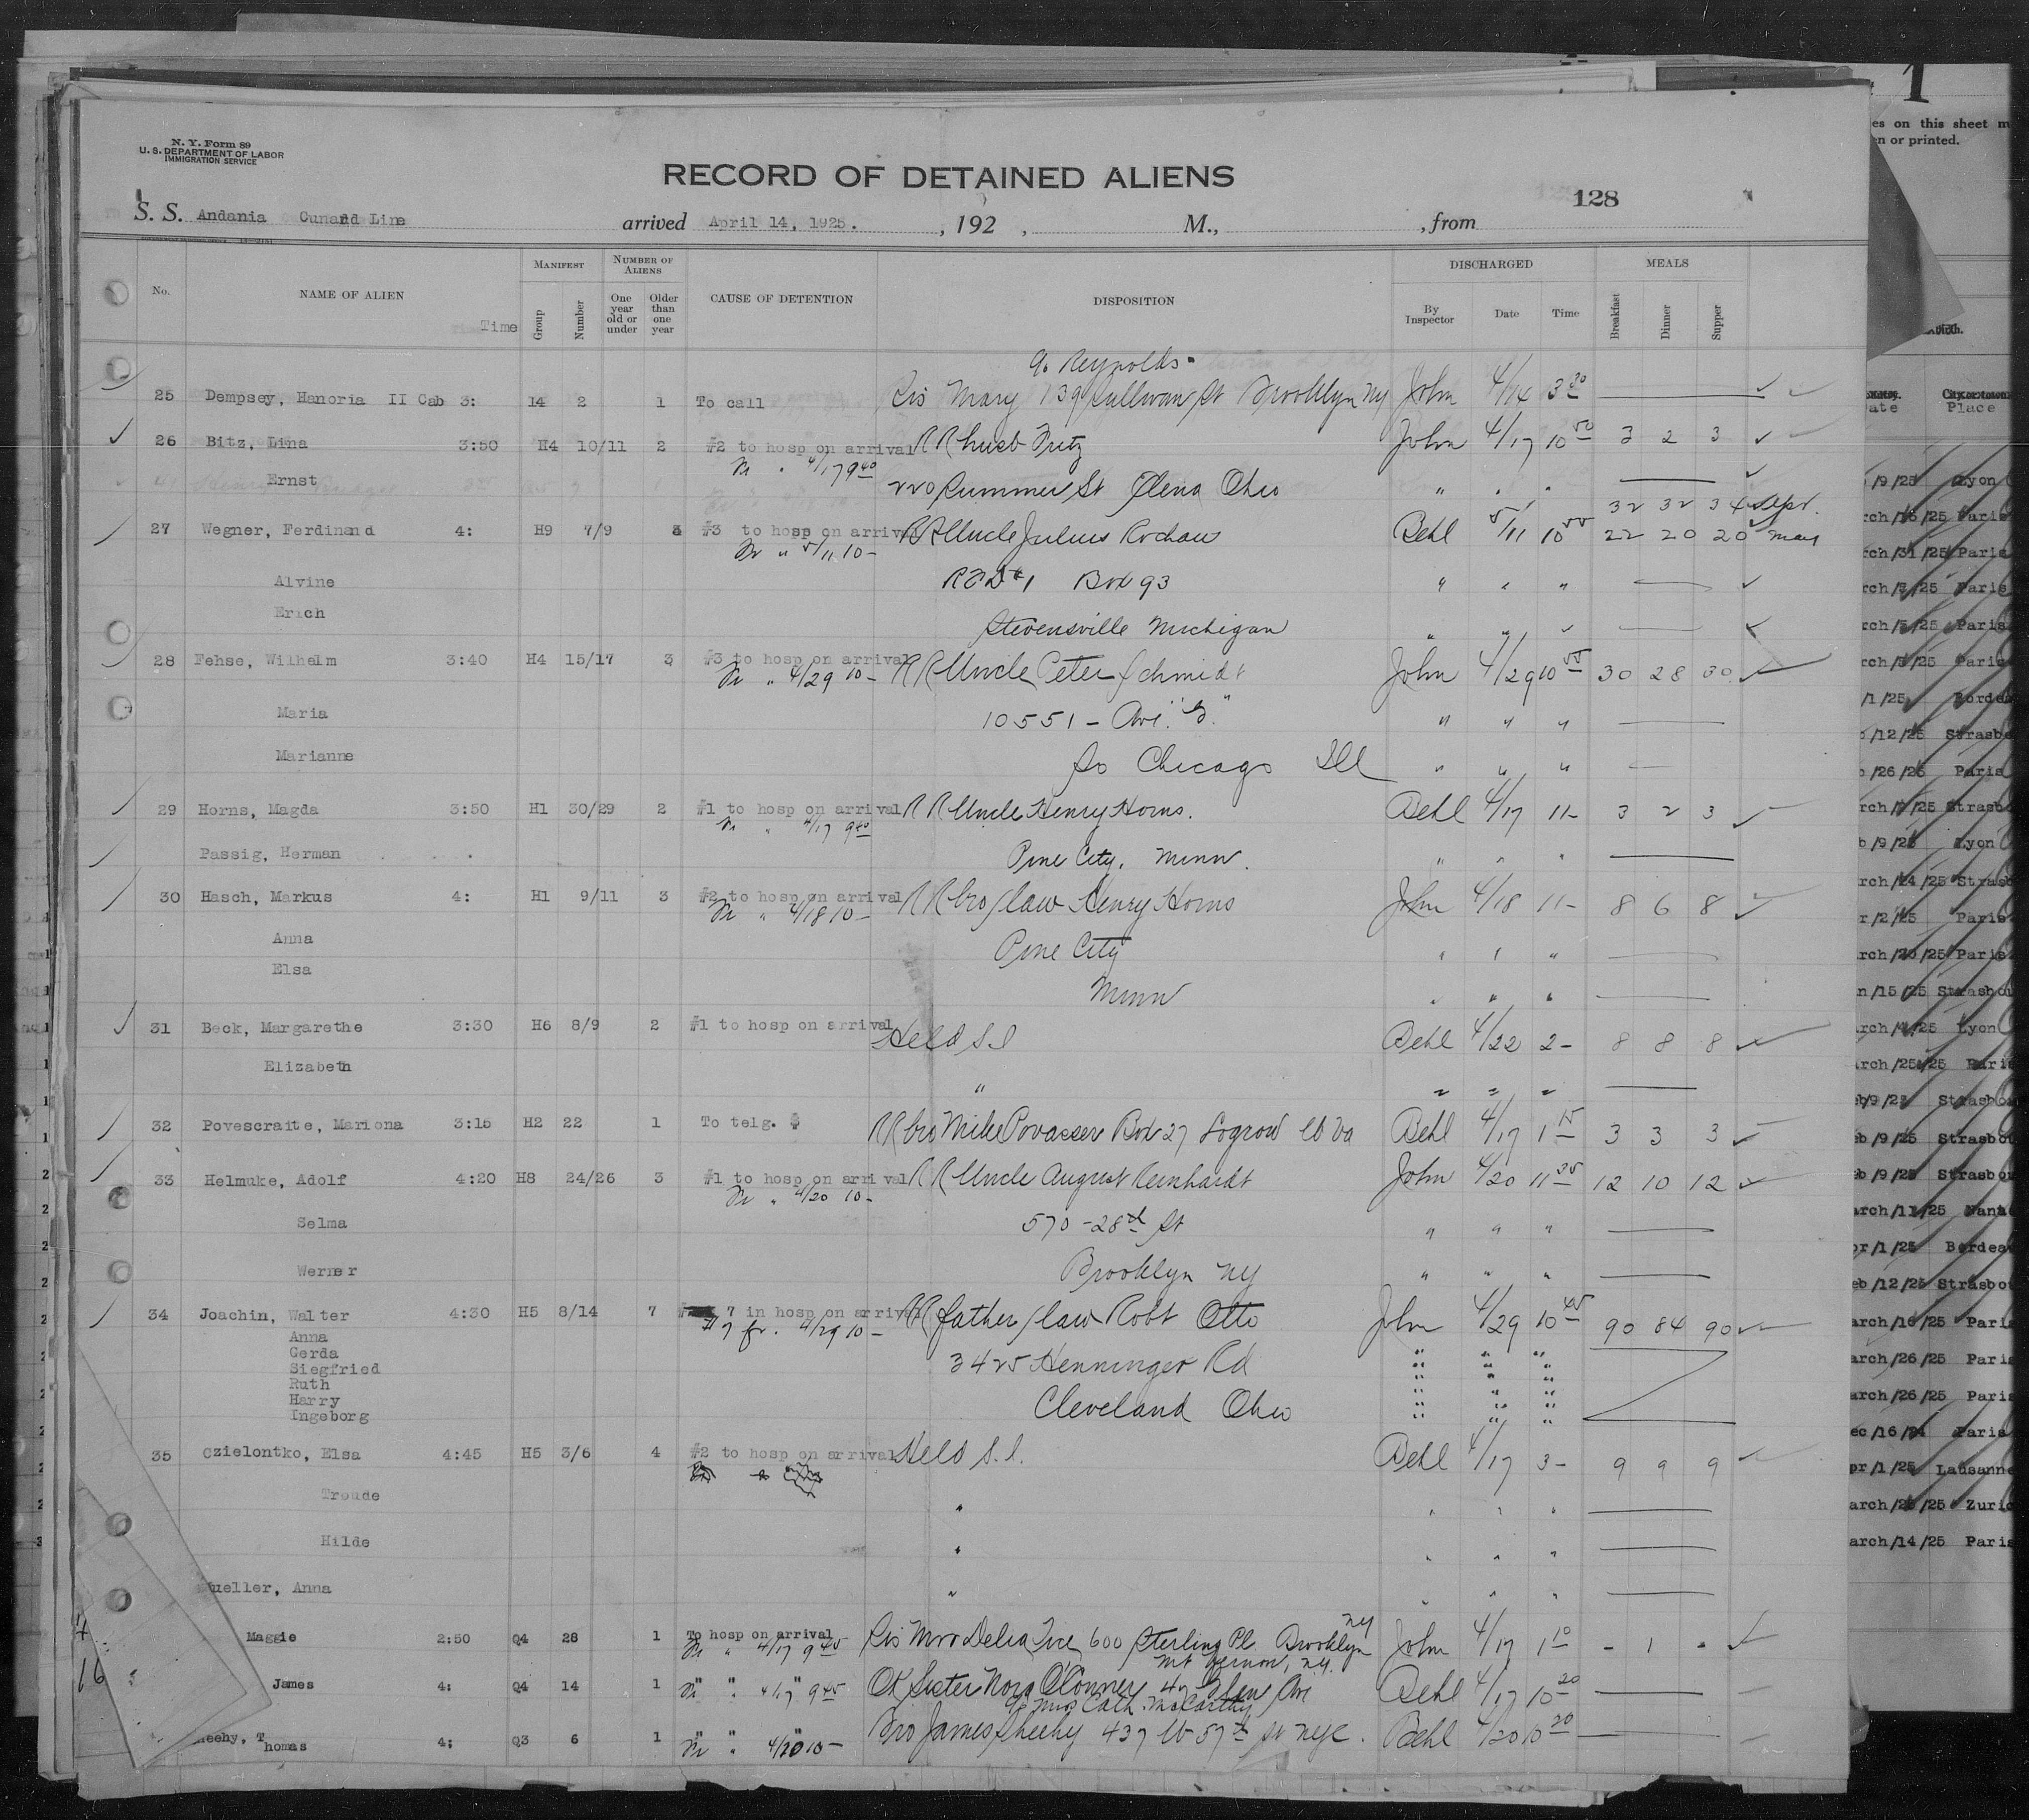 N. Y. Form 89
U. S. DEPARTMENT OF LABOR
IMMIGRATION SERVICE
RECORD OF DETAINED ALIENS
128
S. S. Andania Cunard Line arrived April 14, 1925. , 192 , M., , from
No. NAME OF ALIEN Time MANIFEST Group Number NUMBER OF ALIENS One year old or under Older than one year CAUSE OF DETENTION DISPOSITION DISCHARGED By Inspector Date Time MEALS Breakfast Dinner Supper
c/o Reynolds
25 Dempsey, Hanoria II Cab 3: 14 2 1 To call Sis Mary 139 Sullivan St Brooklyn NY John 4/14 3 30
26 Bitz, Lina 3:50 H4 10/11 2 #2 to hosp on arrival RR husb Fritz John 4/17 10 50 3 2 3
4/17 9 40
Ernst 220 Summer St Elena Ohio " " "
32 32 34 Apr.
27 Wegner, Ferdinand 4: H9 7/9 3 #3 to hosp on arrival RR Uncle Julius Rochau Behl 5/11 10 55 22 20 20 May
" 5/11 10 -
Alvine RFD #1 Box 93 " " "
Erich Stevensville Michigan " " "
28 Fehse, Wilhelm 3:40 H4 15/17 3 #3 to hosp on arrival RR Uncle Peter Schmidt John 4/29 10 55 30 28 30
" 4/29 10 -
Maria 10551 - Ave. " " "
Marianne So Chicago Ill " " "
29 Horns, Magda 3:50 H1 30/29 2 #1 to hosp on arrival RR Uncle Henry Horns. Behl 4/17 11 - 3 2 3
" 4/17 9 40
Passig, Herman Pine City, Minn. " " "
30 Hasch, Markus 4: H1 9/11 3 #2 to hosp on arrival RR bro/law Henry Horns John 4/18 11 - 8 6 8
" 4/18 10 -
Anna Pine City " " "
Elsa Minn " " "
31 Beck, Margarethe 3:30 H6 8/9 2 #1 to hosp on arrival Held S.I Behl 4/22 2 - 8 8 8
Elizabeth " " " "
32 Povescraite, Mariona 3:15 H2 22 1 To telg. $ RR bro Mike Povasser Box 27 Logrow W Va Behl 4/17 1 15 3 3 3
33 Helmuke, Adolf 4:20 H8 24/26 3 #1 to hosp on arrival RR Uncle August Reinhardt John 4/20 11 25 12 10 12
" 4/20 10 -
Selma 570 - 28th St " " "
Werner Brooklyn NY " " "
34 Joachin, Walter 4:30 H5 8/14 7 7 in hosp on arrival RR father/law Robt Otto John 4/29 10 45 90 84 90
#7 fr. 4/29 10 -
Anna
Gerda 3425 Henninger Rd
Siegfried
Ruth
Harry Cleveland Ohio
Ingeborg
35 Czielontko, Elsa 4:45 H5 3/6 4 #2 to hosp on arrival Held S.I. Behl 4/17 3 - 9 9 9
Troude " " " "
Hilde " " " "
Mueller, Anna " " " "
Maggie 2:50 Q4 28 1 To hosp on arrival Sis Mrs Delia Tice 600 Sterling Pl. Brooklyn NY John 4/17 1 10 - 1 -
" 4/17 9 45
Mt Vernon, NY.
James 4: Q4 14 1 " " 4/17 9 45 OK Sister Nora O'Connor Ave Behl 4/17 10 20
c/o Mrs Cath. McCarthy
Thomas 4: Q3 6 1 " " " 4/20 10 - Bro James Sheehy 437 W 57th St NYC. Behl 4/20 10 20
1
es on this sheet m
n or printed.
Date City or town Place
/9/25 Lyon
rch/16/25 Paris
rch/31/25 Paris
rch/7/25 Paris
rch/5/25 Paris
rch/3/25 Paris
/1/25 Bordea
/12/25 Strasbo
/26/25 Paris
rch/7/25 Strasbo
b/9/25 Lyon
rch/24/25 Strasb
r/2/25 Paris
rch/20/25 Paris
n/15/25 Strasbou
arch/4/25 Lyon
arch/25/25 Paris
b/9/25 Strasbo
eb/9/25 Strasbou
eb/9/25 Strasbou
arch/11/25 Nant
pr/1/25 Bordea
eb/12/25 Strasbou
arch/16/25 Paris
arch/26/25 Paris
arch/26/25 Paris
ec/16/24 Paris
pr/1/25 Lausanne
arch/25/25 Zuric
arch/14/25 Paris